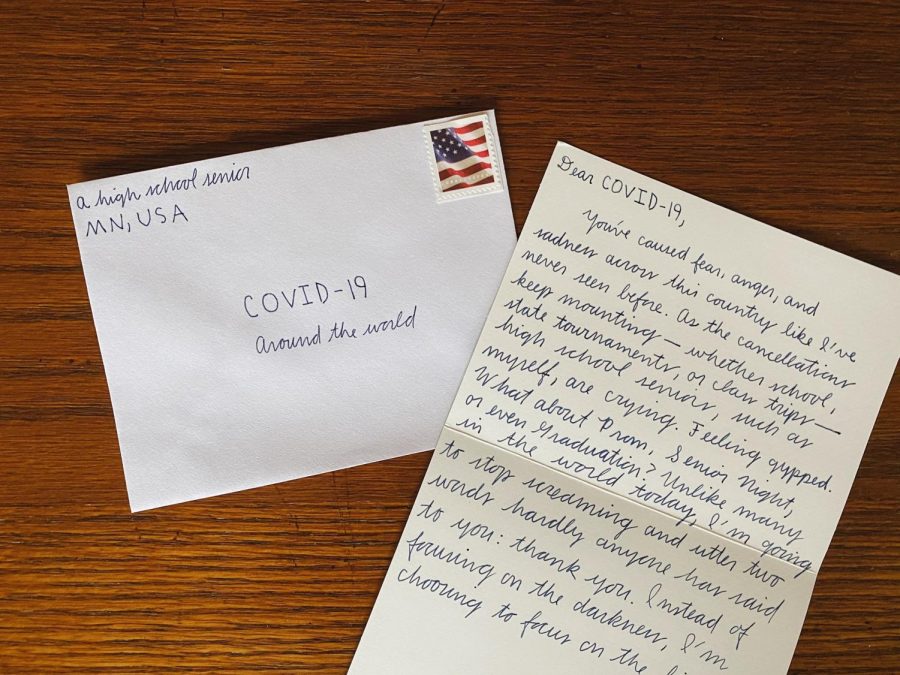 a high school senior
MN, USA
COVID-19
around the world
Dear COVID-19,
You've caused fear, anger, and
sadness across this country like I've
never seen before. As the cancellations
keep mounting— whether school,
state tournaments, or class trips—
high school seniors, such as
myself, are crying. Feeling gypped.
What about Prom, Senior Night,
or even Graduation? Unlike many
in the world today, I'm going
to stop screaming and utter two
words hardly anyone has said
to you: thank you. Instead of
focusing on the darkness, I'm
choosing to focus on the